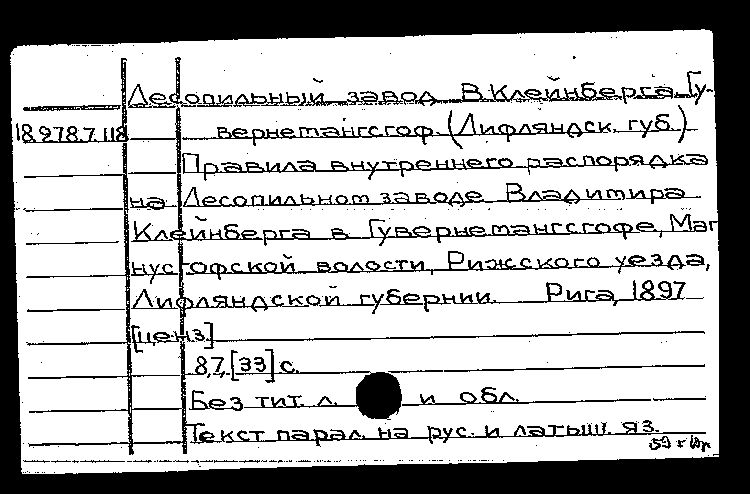 Лесопильный завод В. Клейнберга. Гу-
18.278.7.118 вернементсгоф. (Лифляндск. губ.)
Правила внутреннего распорядка
на Лесопильном заводе Владимира
Клейнберга в Гувернементсгофе, Маг
нусгофской волости, Рижского уезда,
Лифляндской губернии. Рига, 1897
[ценз.]
8,7,[33] с.
Без тит. л. и обл.
Текст парал. на рус. и латыш. яз.